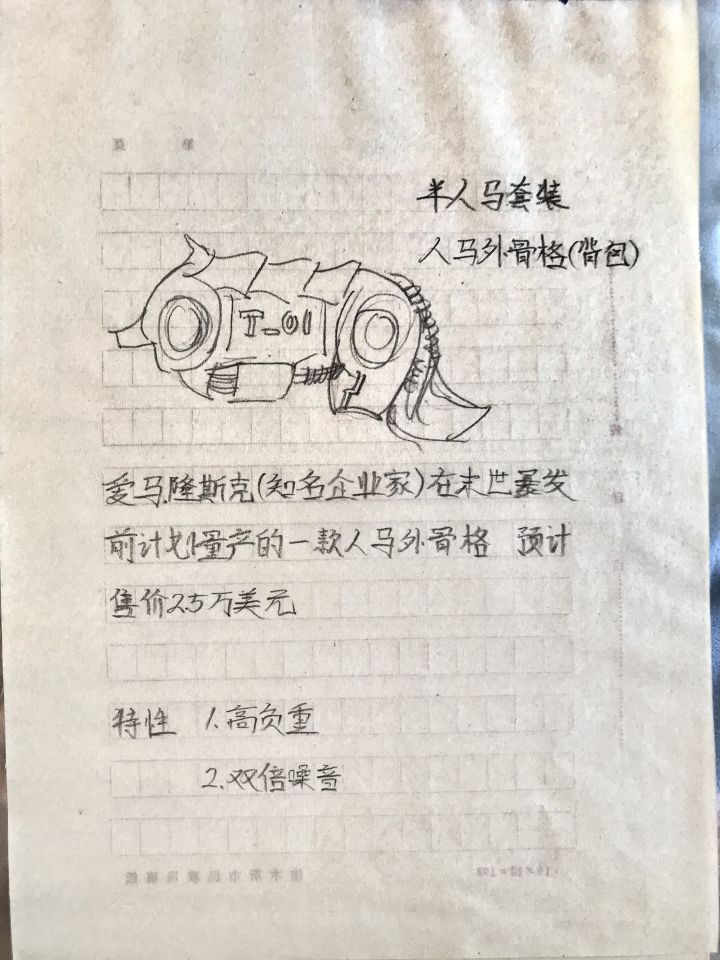 半人马套装
人马外骨格(背包)
T-01
爱马隆斯克(知名企业家)在末世暴发
前计划量产的一款人马外骨格 预计
售价2.5万美元
特性 1.高负重
2.双倍噪音